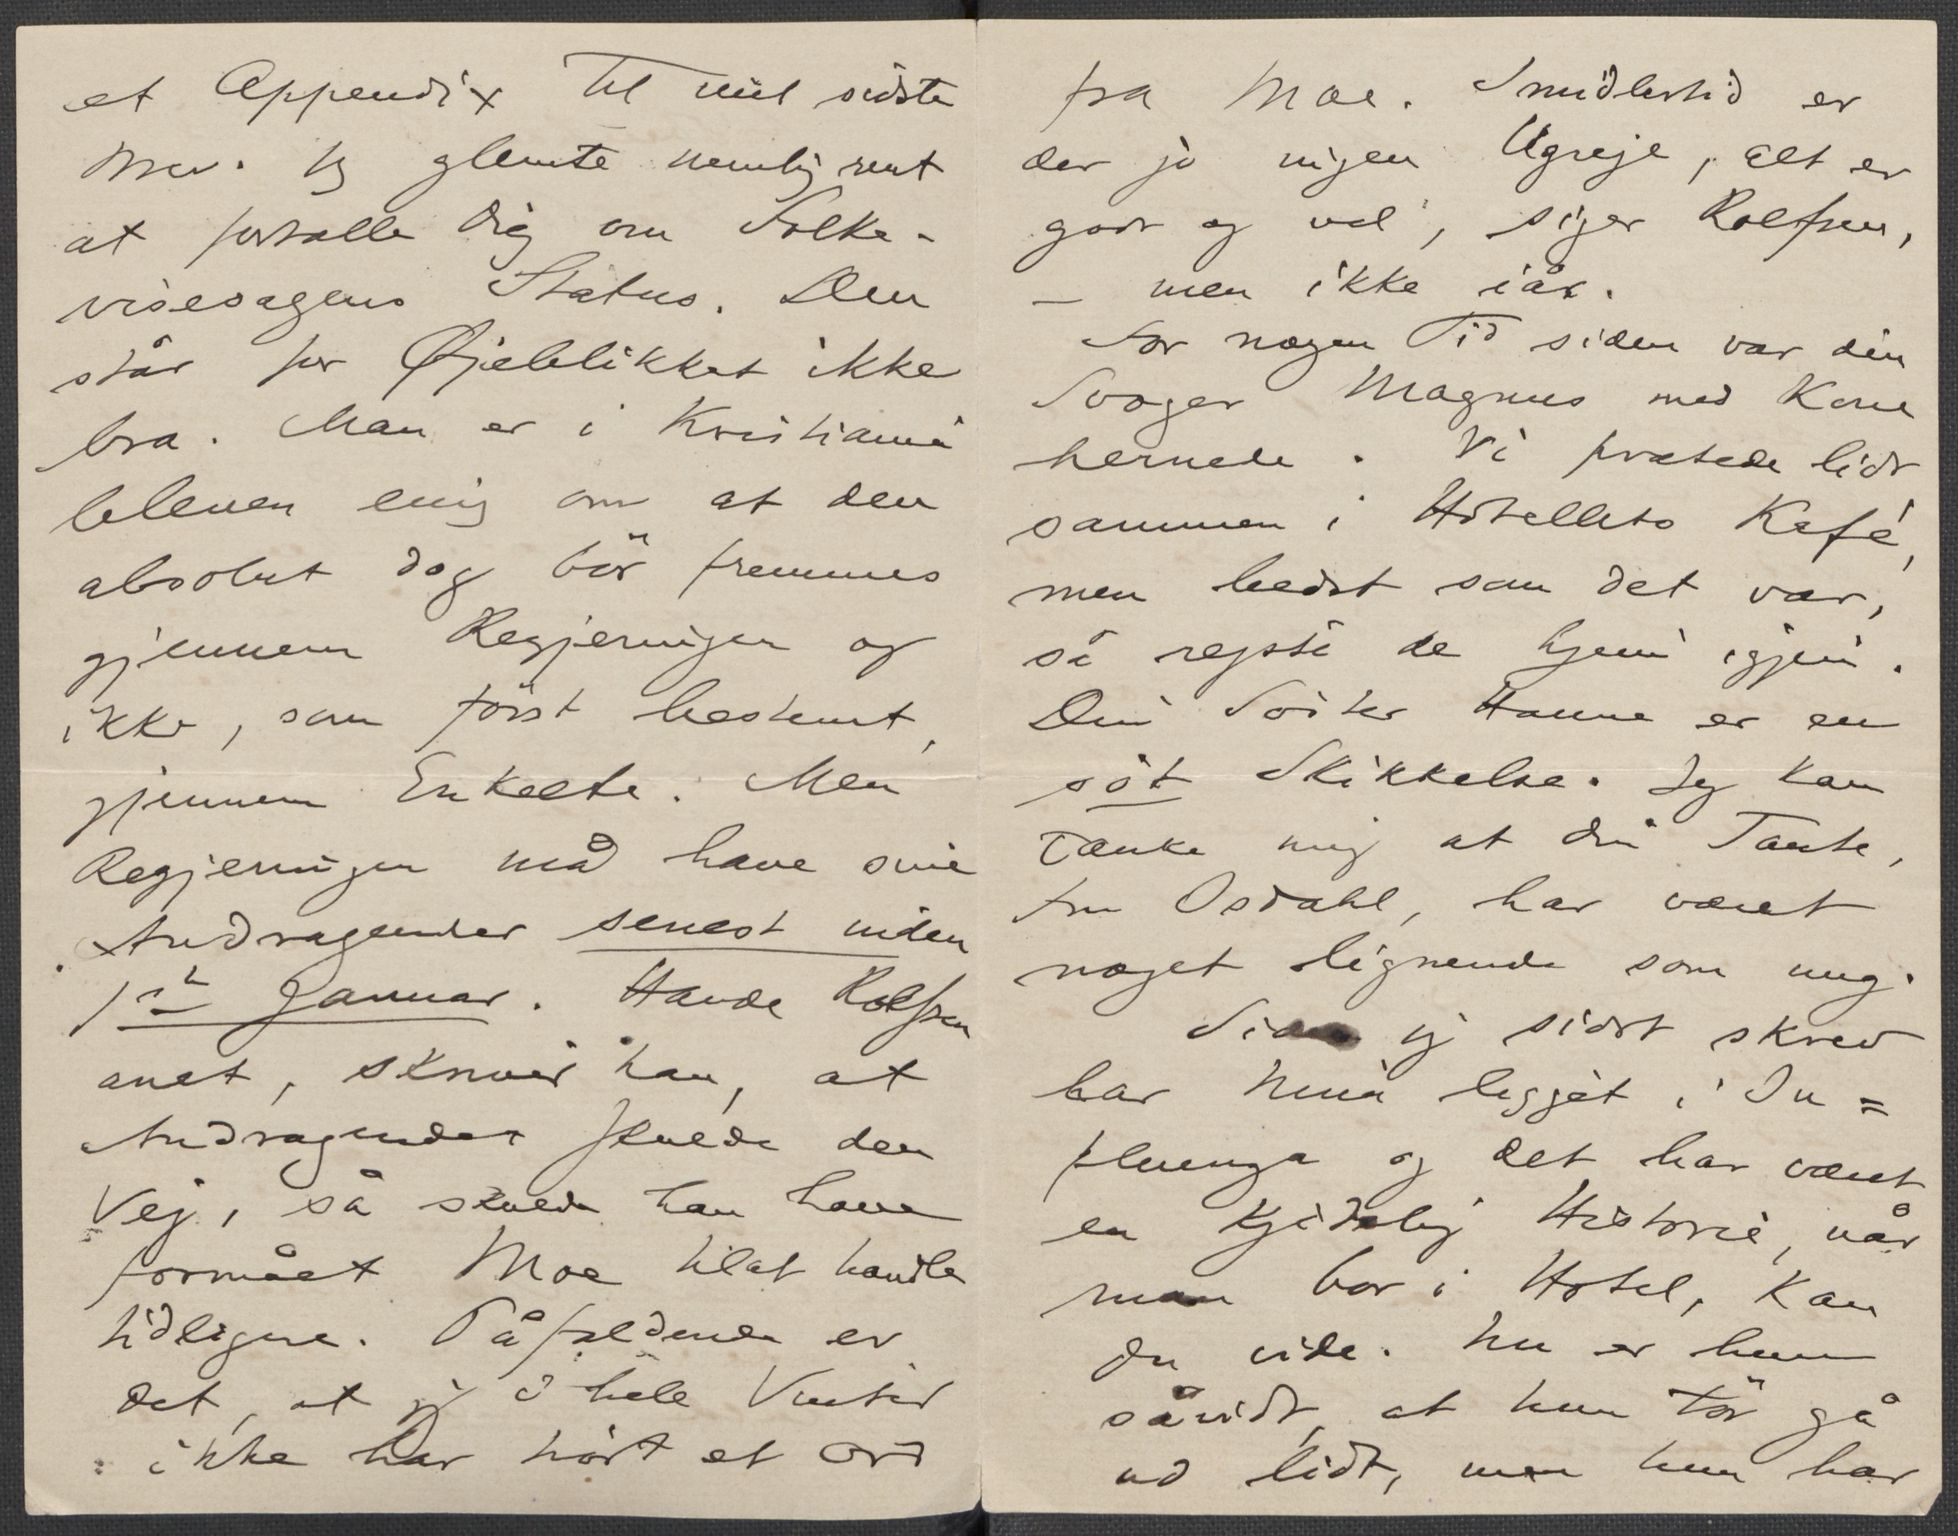 et Appendix til mit sidste
Brev. Jeg glemte nemlig rent
at fortælle Dig om Folke-
visesagens Status. Den
står for Øjeblikket ikke
bra. Man er i Kristiania
bleven enig om at den
absolut dog bör fremmes
gjennem Regjeringen og
ikke, som först bestemt,
gjennem Enkelte. Men
Regjeringen må have sine
Andragender senest inden
1ste Januar. Havde Rolfsen
anet, skriver han, at
Andragendet skulde den
Vej, så skulde han have
formået Moe til at handle
tidligere. Påfaldende er
det, at jeg i hele Vinter
ikke har hört et Ord
fra Moe. Imidlertid er
der jo ingen Ugreje, alt er
godt og vel, siger Rolfsen,
– men ikke iår.
For nogen Tid siden var din
Svoger Magnus med Kone
hernede. Vi pratede lidt
sammen i Hotellets Kafé,
men bedst som det var,
så rejste de hjem igjen.
Din Söster Hanne er en
söt Skikkelse. Jeg kan
tænke mig at din Tante,
fru Opdahl, har været
noget lignende som ung.
Siden jeg sidst skrev
har Nina ligget i In=
fluenza og det har været
en kjedelig Historie, når
man bor i Hotel, kan
du vide. Nu er hun
såvidt, at hun tör gå
ud lidt, men hun har